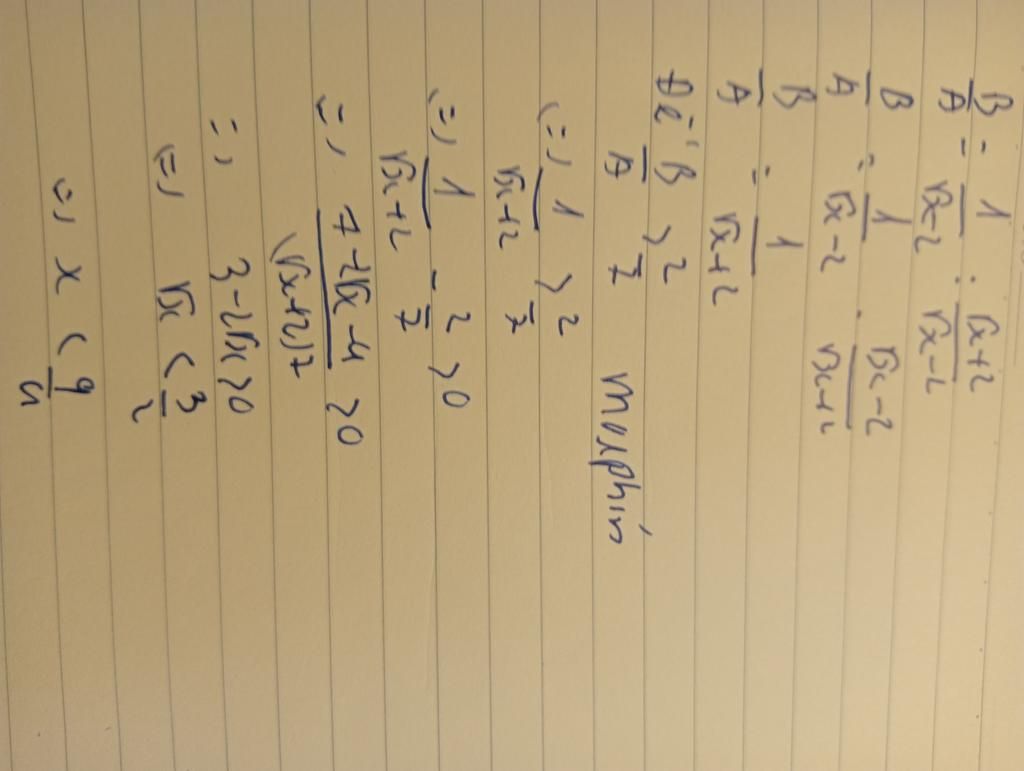 B/A = 1/(√x-2) : (√x+2)/(√x-2)
B/A = 1/(√x-2) . (√x-2)/(√x+2)
B/A = 1/(√x+2)
Để B/A > 2/7 Morphin
(=) 1/(√x+2) > 2/7
(=) 1/(√x+2) - 2/7 > 0
=) (7-2√x-4)/((√x+2)7) > 0
=) 3-2√x > 0
(=) √x < 3/2
=) x < 9/4